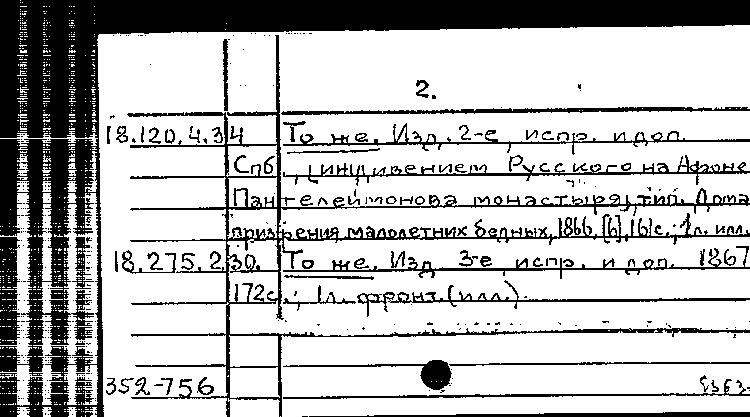 2.
18.120.4.34 То же. Изд. 2-е, испр. и доп.
Спб., иждивением Русского на Афоне
Пантелеймонова монастыря, тип. Дома
призрения малолетних бедных, 1866, [6], 161с.; 1л. илл.
18.275.2.30. То же. Изд. 3-е испр. и доп. 1867
172с.; 1л. фронт. (илл.).
352-756